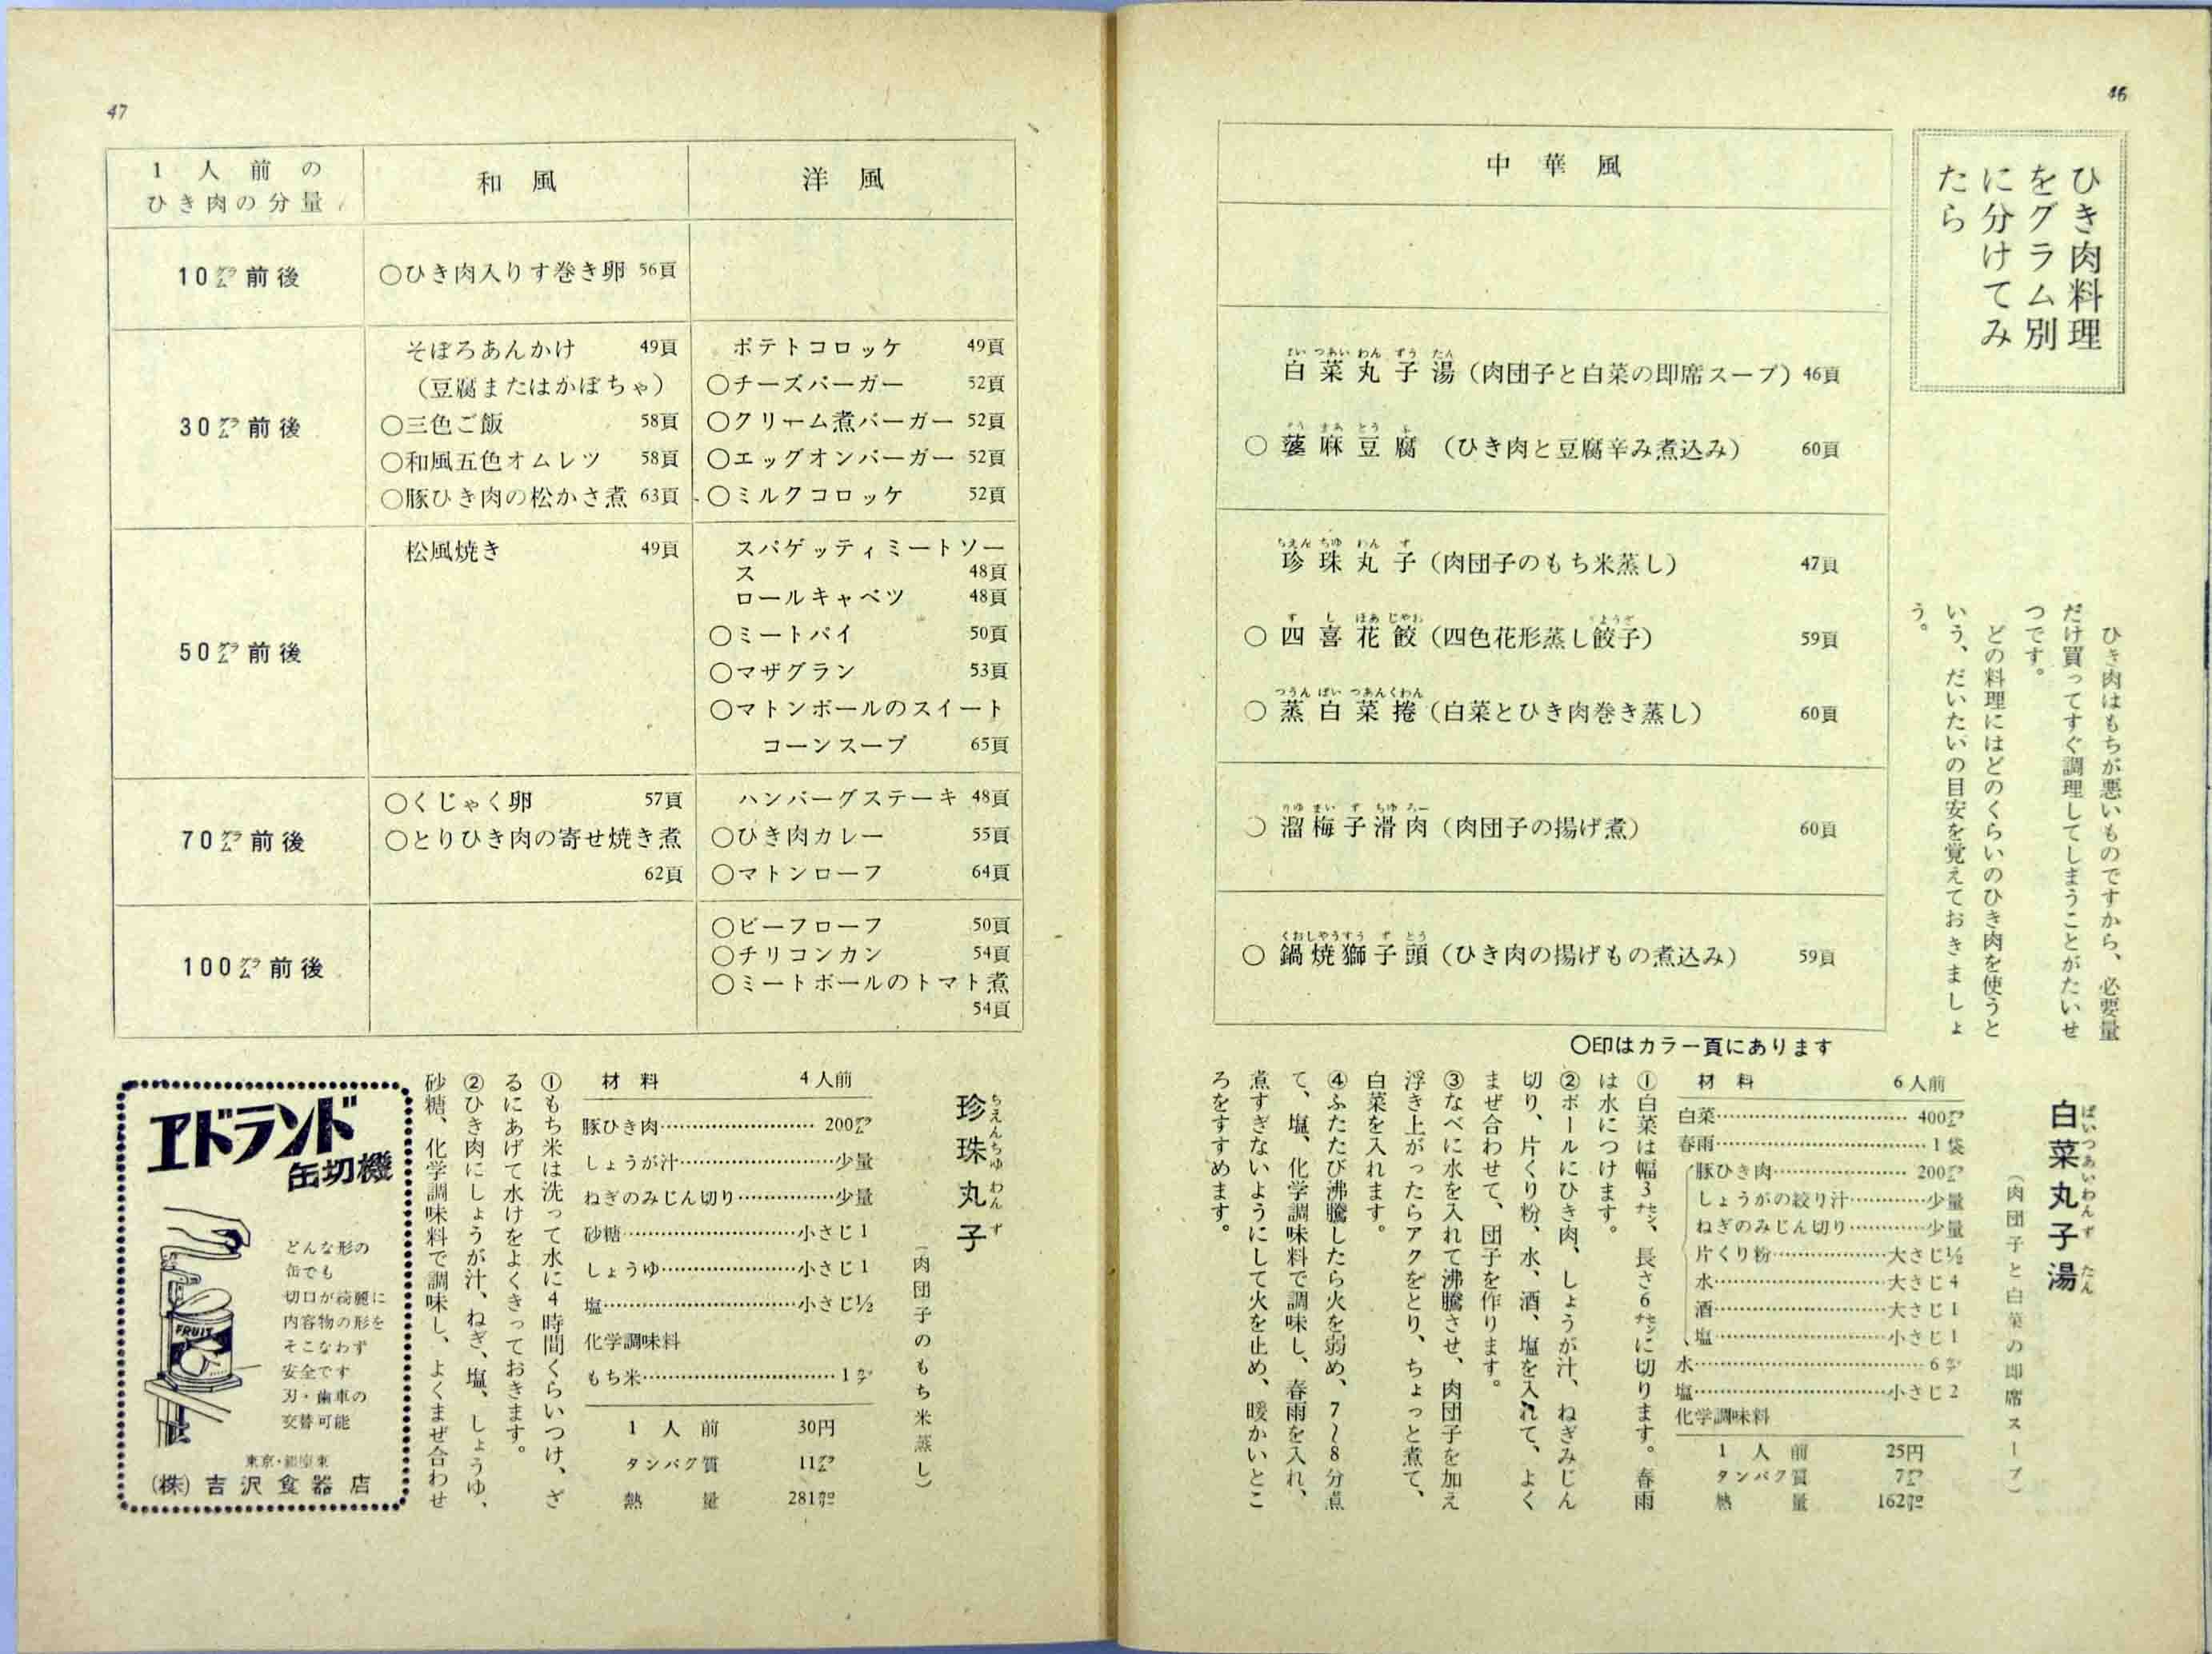 46
ひき肉料理
をグラム別
に分けてみ
たら
ひき肉はもちが悪いものですから、必要量
だけ買ってすぐ調理してしまうことがたいせ
つです。
どの料理にはどのくらいのひき肉を使うと
いう、だいたいの目安を覚えておきましょ
う。
中華風
白菜丸子湯(肉団子と白菜の即席スープ) 46頁
○ 麻豆腐 (ひき肉と豆腐辛み煮込み) 60頁
ちえん ちゆ わん ず
珍珠丸子(肉団子のもち米蒸し) 47頁
○四喜花餃(四色花形蒸し餃子) 59頁
つうん ぱい つあんくわん
○蒸白菜捲(白菜とひき肉巻き蒸し) 60頁
○溜梅子滑肉(肉団子の揚げ煮) 60頁
○鍋焼獅子頭(ひき肉の揚げもの煮込み) 59頁
○印はカラー頁にあります
ぱいつあいわんず たん
白菜丸子湯
(肉団子と白菜の即席スープ)
材料 6人前
白菜…………400グラム
春雨…………1袋
豚ひき肉…………200グラム
しょうがの絞り汁…………少量
ねぎのみじん切り…………少量
片くり粉…………大さじ½
水…………大さじ4
酒…………大さじ1
塩…………小さじ1
水…………6カップ
塩…………小さじ2
化学調味料
1人前 25円
タンパク質 7グラム
熱量 162カロリー
①白菜は幅3センチ、長さ6センチに切ります。春雨
は水につけます。
②ボールにひき肉、しょうが汁、ねぎみじん
切り、片くり粉、水、酒、塩を入れて、よく
まぜ合わせて、団子を作ります。
③なべに水を入れて沸騰させ、肉団子を加え
浮き上がったらアクをとり、ちょっと煮て、
白菜を入れます。
④ふたたび沸騰したら火を弱め、7〜8分煮
て、塩、化学調味料で調味し、春雨を入れ、
煮すぎないようにして火を止め、暖かいとこ
ろをすすめます。
47
1人前の
ひき肉の分量
和風
洋風
10グラム前後
○ひき肉入りす巻き卵 56頁
30グラム前後
そぼろあんかけ 49頁
(豆腐またはかぼちゃ)
○三色ご飯 58頁
○和風五色オムレツ 58頁
○豚ひき肉の松かさ煮 63頁
ポテトコロッケ 49頁
○チーズバーガー 52頁
○クリーム煮バーガー 52頁
○エッグオンバーガー 52頁
○ミルクコロッケ 52頁
50グラム前後
松風焼き 49頁
スパゲッティミートソー
ス 48頁
ロールキャベツ 48頁
○ミートパイ 50頁
○マザグラン 53頁
○マトンボールのスイート
コーンスープ 65頁
70グラム前後
○くじゃく卵 57頁
○とりひき肉の寄せ焼き煮
62頁
ハンバーグステーキ 48頁
○ひき肉カレー 55頁
○マトンローフ 64頁
100グラム前後
○ビーフローフ 50頁
○チリコンカン 54頁
○ミートボールのトマト煮
54頁
ちえんちゆ わん ず
珍珠丸子
(肉団子のもち米蒸し)
材料 4人前
豚ひき肉…………200グラム
しょうが汁…………少量
ねぎのみじん切り…………少量
砂糖…………小さじ1
しょうゆ…………小さじ1
塩…………小さじ½
化学調味料
もち米…………1カップ
1人前 30円
タンパク質 11グラム
熱量 281カロリー
①もち米は洗って水に4時間くらいつけ、ざ
るにあげて水けをよくきっておきます。
②ひき肉にしょうが汁、ねぎ、塩、しょうゆ、
砂糖、化学調味料で調味し、よくまぜ合わせ
エドランド
缶切機
FRUIT
どんな形の
缶でも
切口が綺麗に
内容物の形を
そこなわず
安全です
刃・歯車の
交替可能
東京・銀座東
(株)吉沢食器店